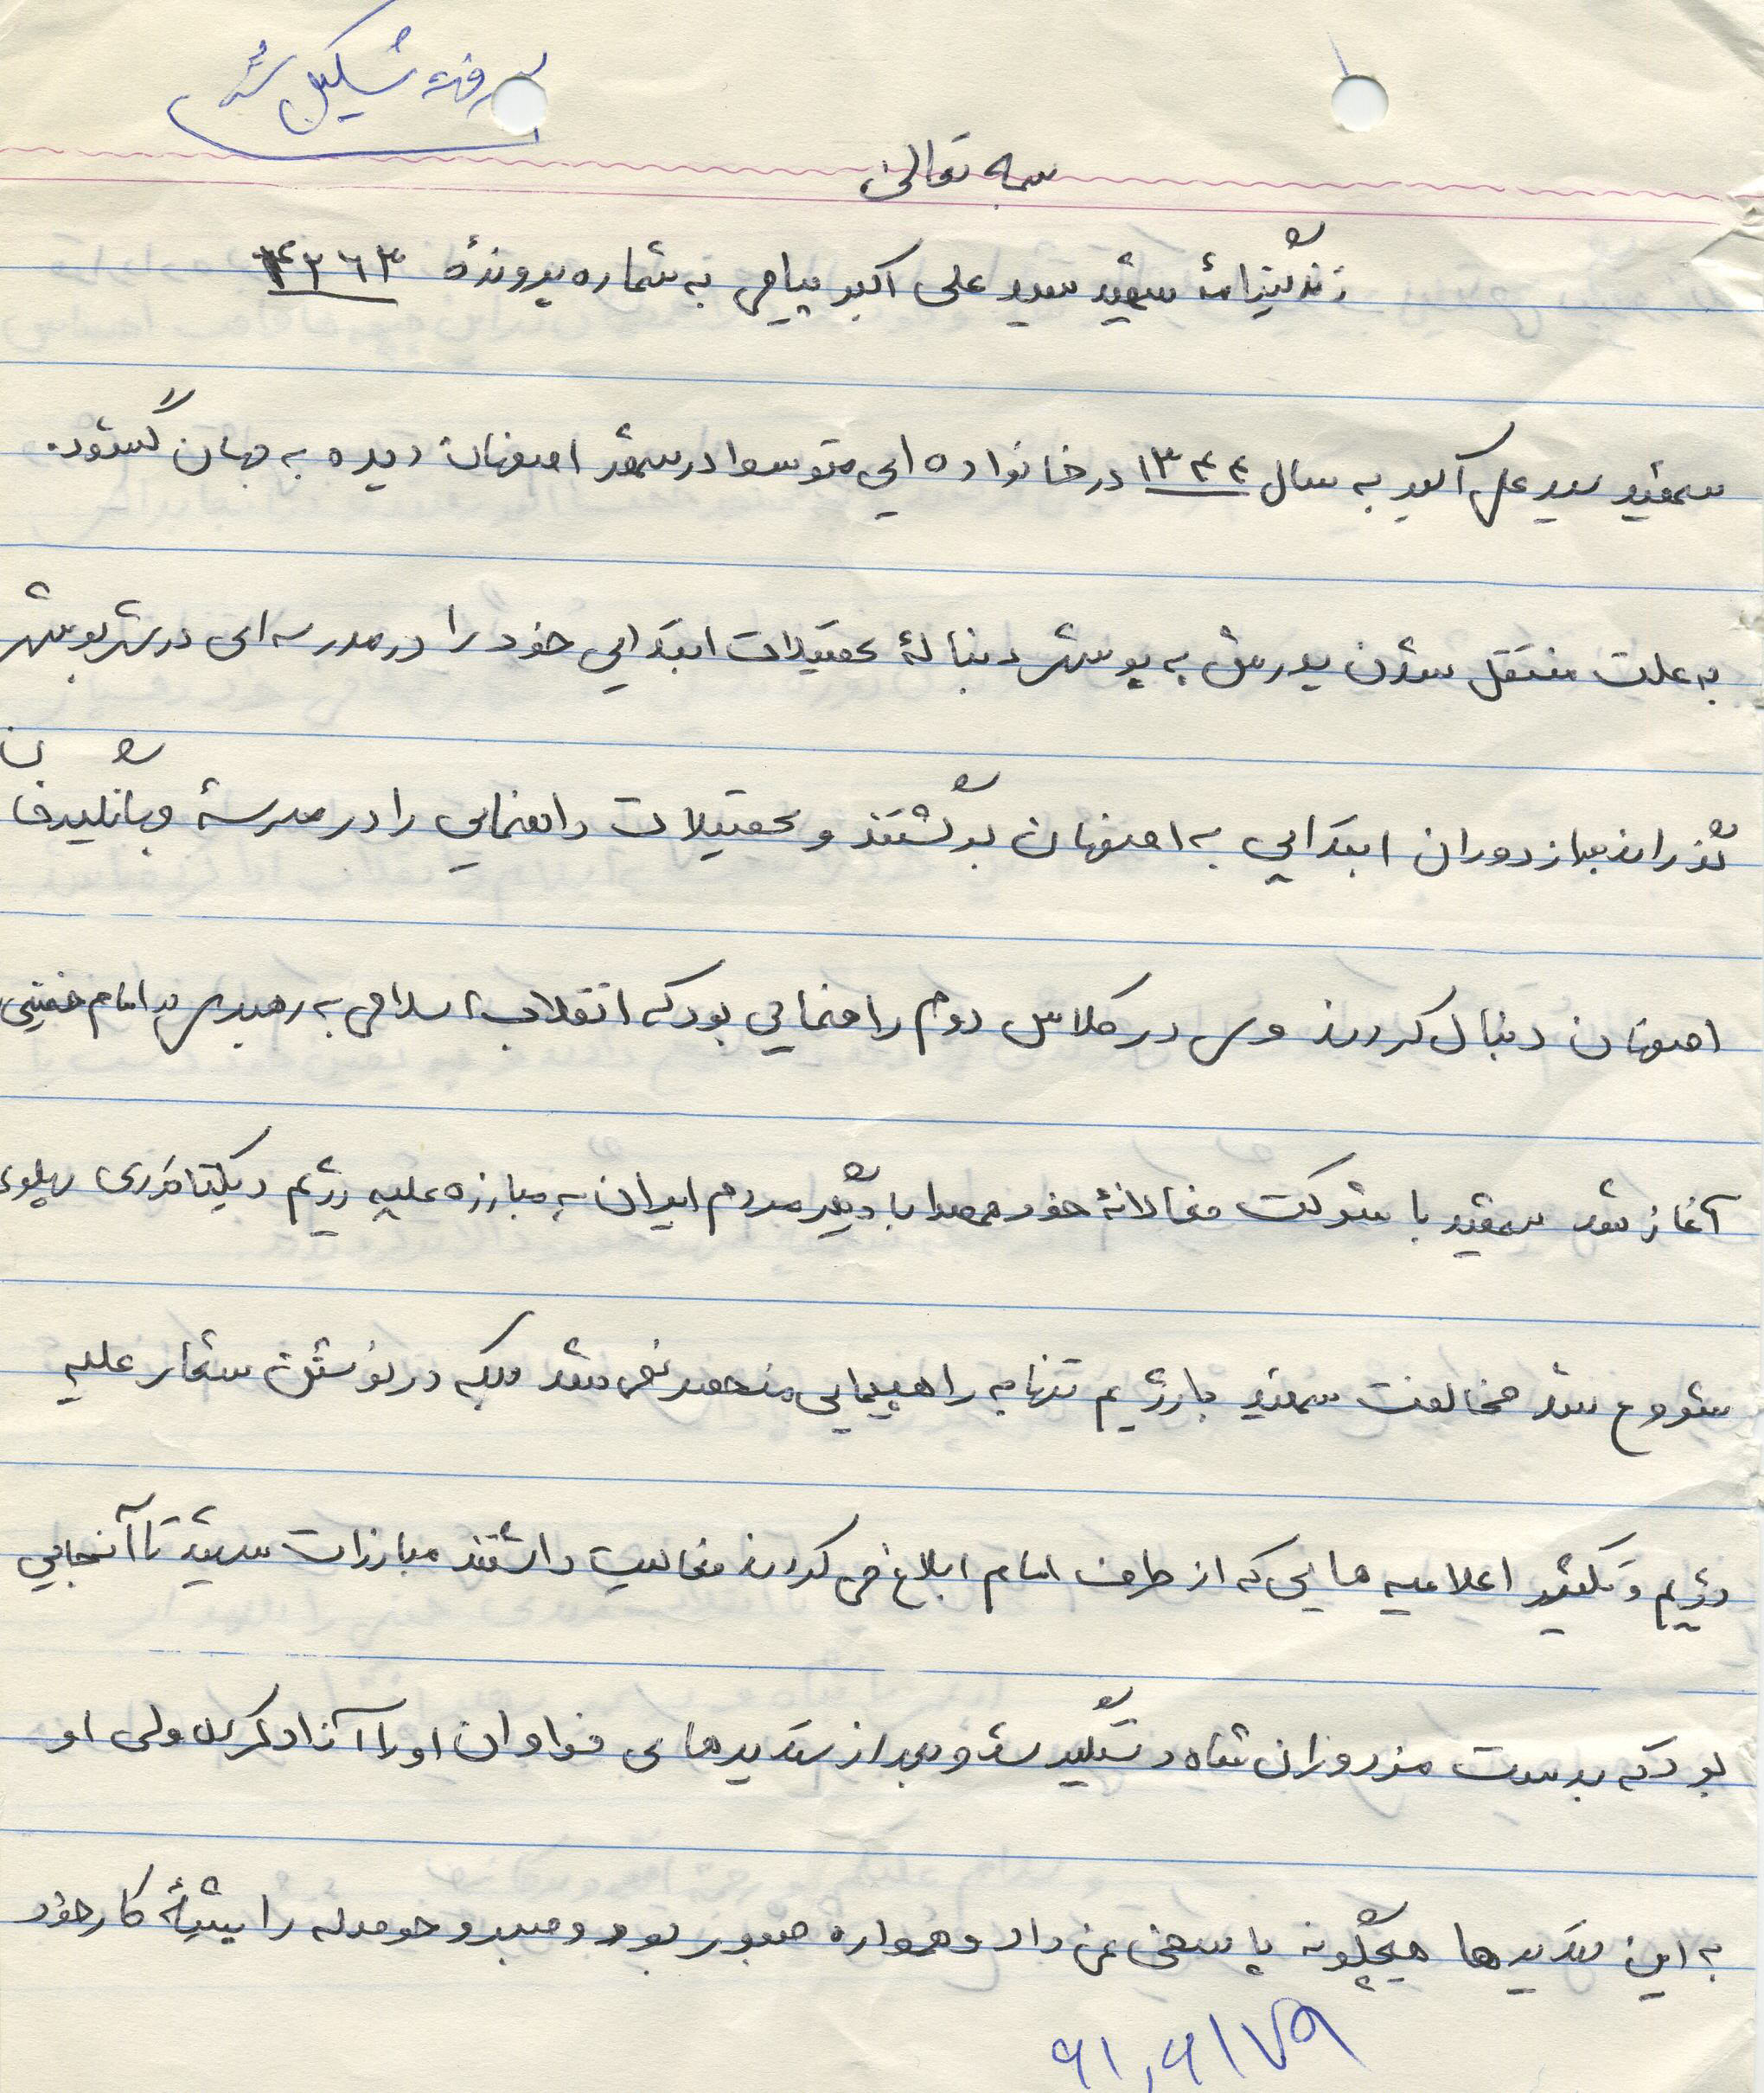 تشکیل شد
بسمه تعالی
زندگینامهٔ شهید سید علی اکبر پیامی به شماره پروندهٔ ۴۲۶۳
شهید سید علی اکبر به سال ۱۳۴۴ در خانواده ایی متوسط در شهر اصفهان دیده به جهان گشود.
به علت منتقل شدن پدرش به بوشهر دنبالهٔ تحصیلات ابتدایی خود را در مدرسه ای در شهر بوشهر
گذراند بعد از دوران ابتدایی به اصفهان برگشتند و تحصیلات راهنمایی را در مدرسهٔ
اصفهان دنبال کردند وی در کلاس دوم راهنمایی بود که انقلاب اسلامی به رهبری امام خمینی
آغاز شد شهید با شرکت فعالانهٔ خود همصدا با دیگر مردم ایران به مبارزه علیه رژیم دیکتاتوری پهلوی
شروع شد مخالفت شهید با رژیم تنها به راهپیمایی منحصر نمی شد بلکه در نوشتن شعار علیه
رژیم و تکثیر اعلامیه هایی که از طرف امام ابلاغ می کردند فعالیت داشتند مبارزات شهید تا آنجایی
بود که بدست مزدوران شاه دستگیر شد و بعد از تهدیدهای فراوان او را آزاد کردند ولی او
به این تهدیدها هیچگونه پاسخی نمی داد و همواره صبور بود و صبر و حوصله را پیشهٔ کار خود
۶۱,۶۱۷۹